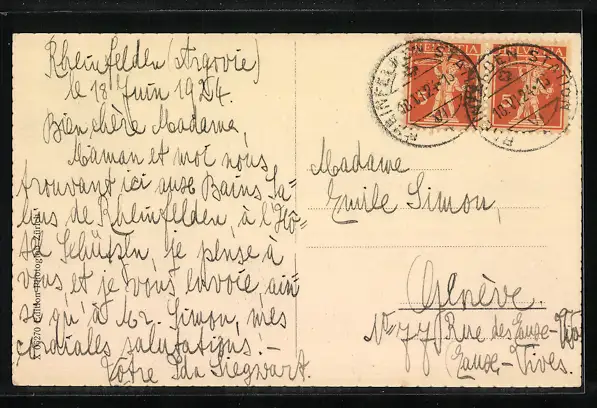 Rheinfelden (Argovie)
le 18 Juin 1924.
Bien chère Madame,
Maman et moi nous
trouvant ici aux Bains Sa-
lins de Rheinfelden, à l'Hô-
tel Schützen, je pense à
vous et je vous envoie ain-
si qu'à Mr. Simon, mes
cordiales salutations. –
Votre Ida Siegwart.
HELVETIA HELVETIA
RHEINFELDEN STATION
VI
Madame
Emile Simon,
Genève.
No 77 Rue des Eaux-Vives
Eaux-Vives.